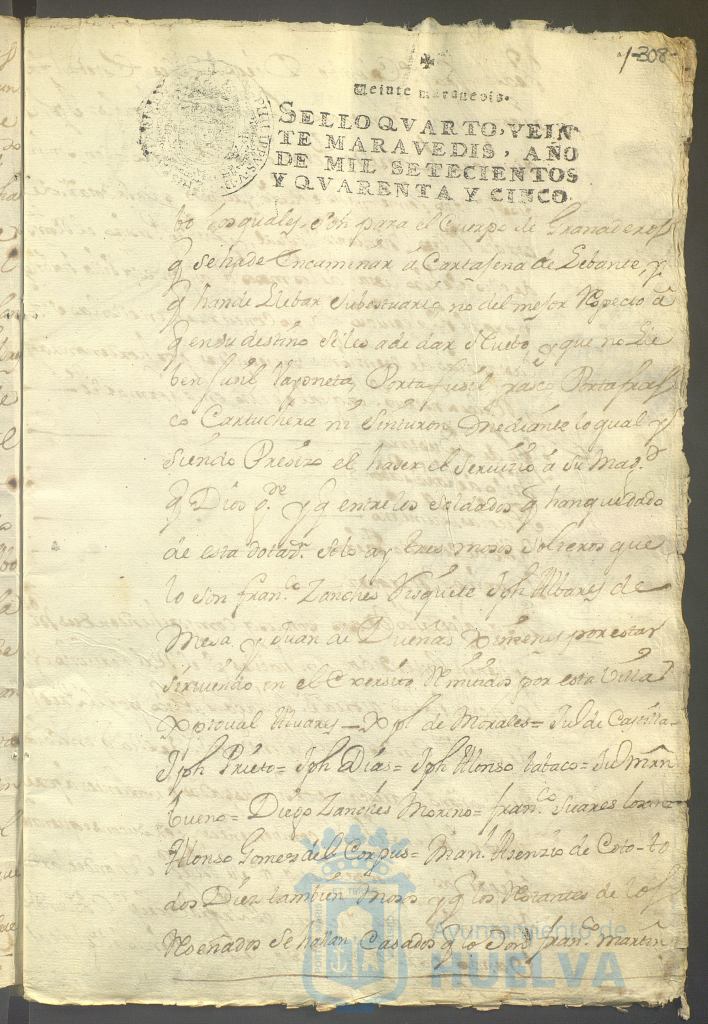 1-308-
Veinte maravedis.
SELLO QVARTO, VEIN
TE MARAVEDIS, AÑO
DE MIL SETECIENTOS
Y QVARENTA Y CINCO.
bo los quales son para el Cuerpo de Granaderos
q se hade Encaminar â Cartajena de Lebante, y
q hande Llebar subestuario no del mejor Respecto â
q en su destino se les ade dar Nuebo y que no Lle
ben fusil Vayoneta Porta fusil frasco Porta fras
co Cartuchera ni Sinturon mediante lo qual y
siendo Presizo el haser el Servizio â Su Mag.d
q Dios g.de y q entre los Soldados q han quedado
de esta dotaz.n solo ay tres mosos Solteros que
lo son fran.co Zanches Visquete Jph Albares de
Mesa y Juan de Dueñas Ximenes por estar
sirviendo en el Exersito Remitidos por esta Villa
Xptoval Alvares= Xpl de Morales= Ju.o de Castilla=
Jph Prieto= Jph Dias= Jph Alonso tabaco= Ju.o Mrn
bueno= Diego Zanches Morino= fran.co Suares
Alonso Gomes del Corpus= Man.l Asenzio de Coto- to
dos Diez tambien Mosos y q los Restantes de los
Reseñados se hallan Casados q lo Son fran.co martin
Ayuntamiento de
HUELVA